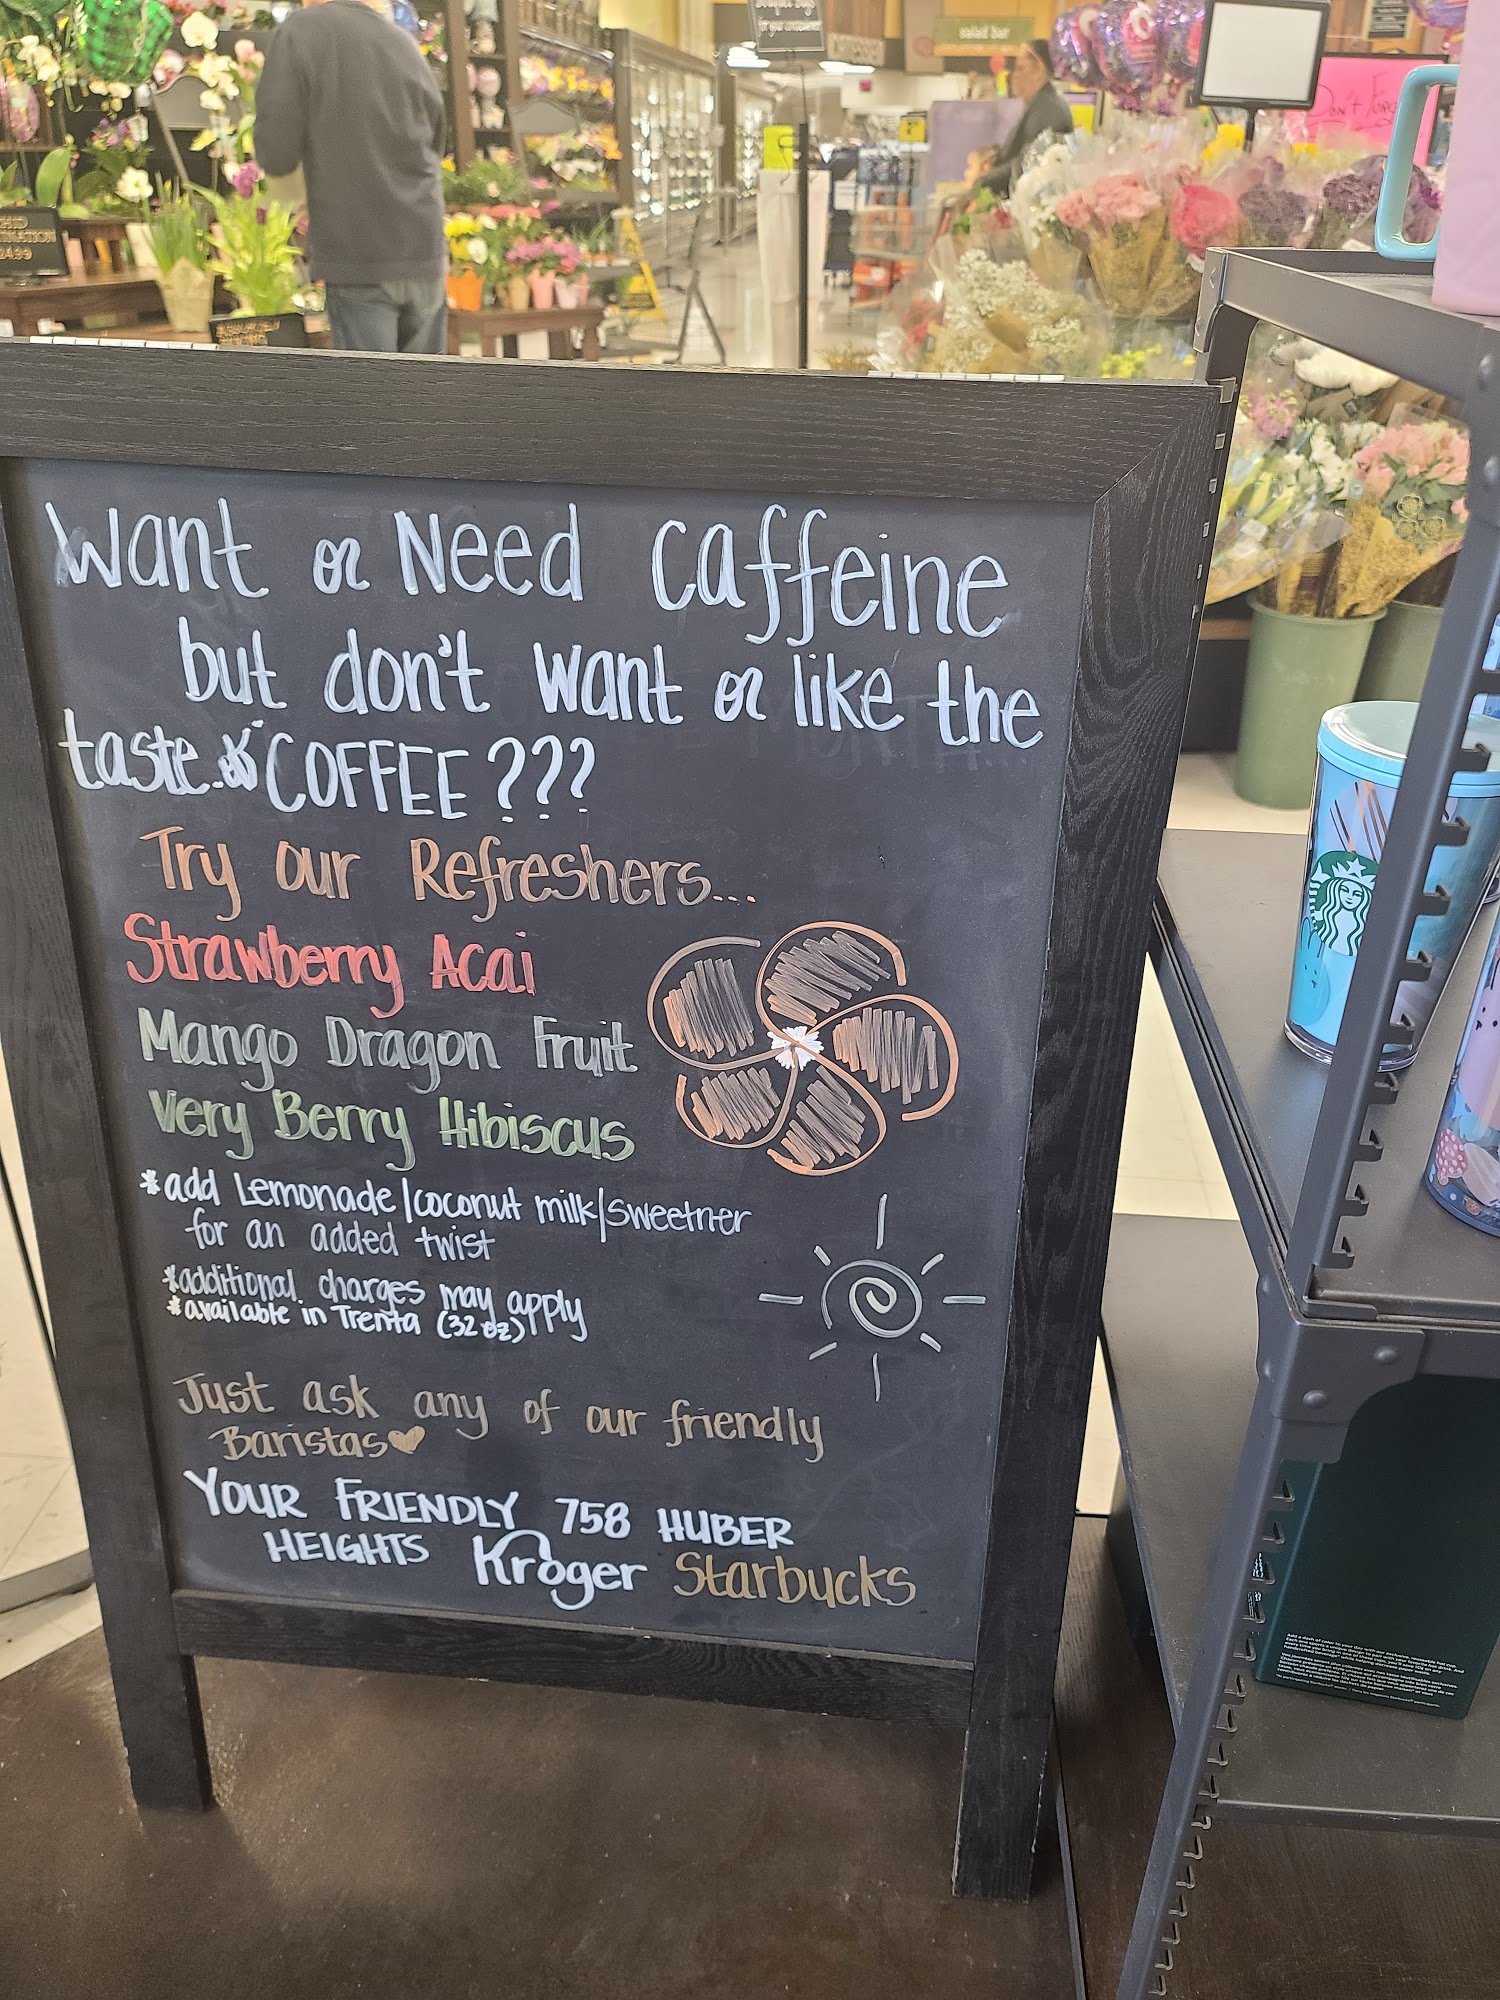 salad bar
Don't Forg
Want or Need caffeine
but don't want or like the
taste of COFFEE???
Try our Refreshers...
Strawberry Acai
Mango Dragon Fruit
Very Berry Hibiscus
*add Lemonade/coconut milk/sweetner
for an added twist
*additional charges may apply
*available in Trenta (32 oz)
Just ask any of our friendly
Baristas
YOUR FRIENDLY 758 HUBER
HEIGHTS Kroger Starbucks